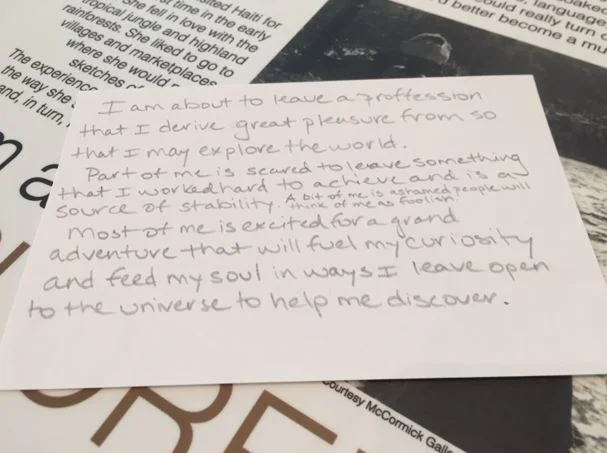 sited Haiti for
time in the early
She fell in love with the
tropical jungle and highland
rainforests. She liked to go to
villages and marketplaces
where she would
sketches
The experience
the way she
and, in turn,
language
ould really turn
better become a mu
I am about to leave a proffession
that I derive great pleasure from so
that I may explore the world.
Part of me is scared to leave something
that I worked hard to achieve and is a
source of stability. A bit of me is ashamed people will
think of me as foolish.
Most of me is excited for a grand
adventure that will fuel my curiosity
and feed my soul in ways I leave open
to the universe to help me discover.
ourtesy McCormick Galle